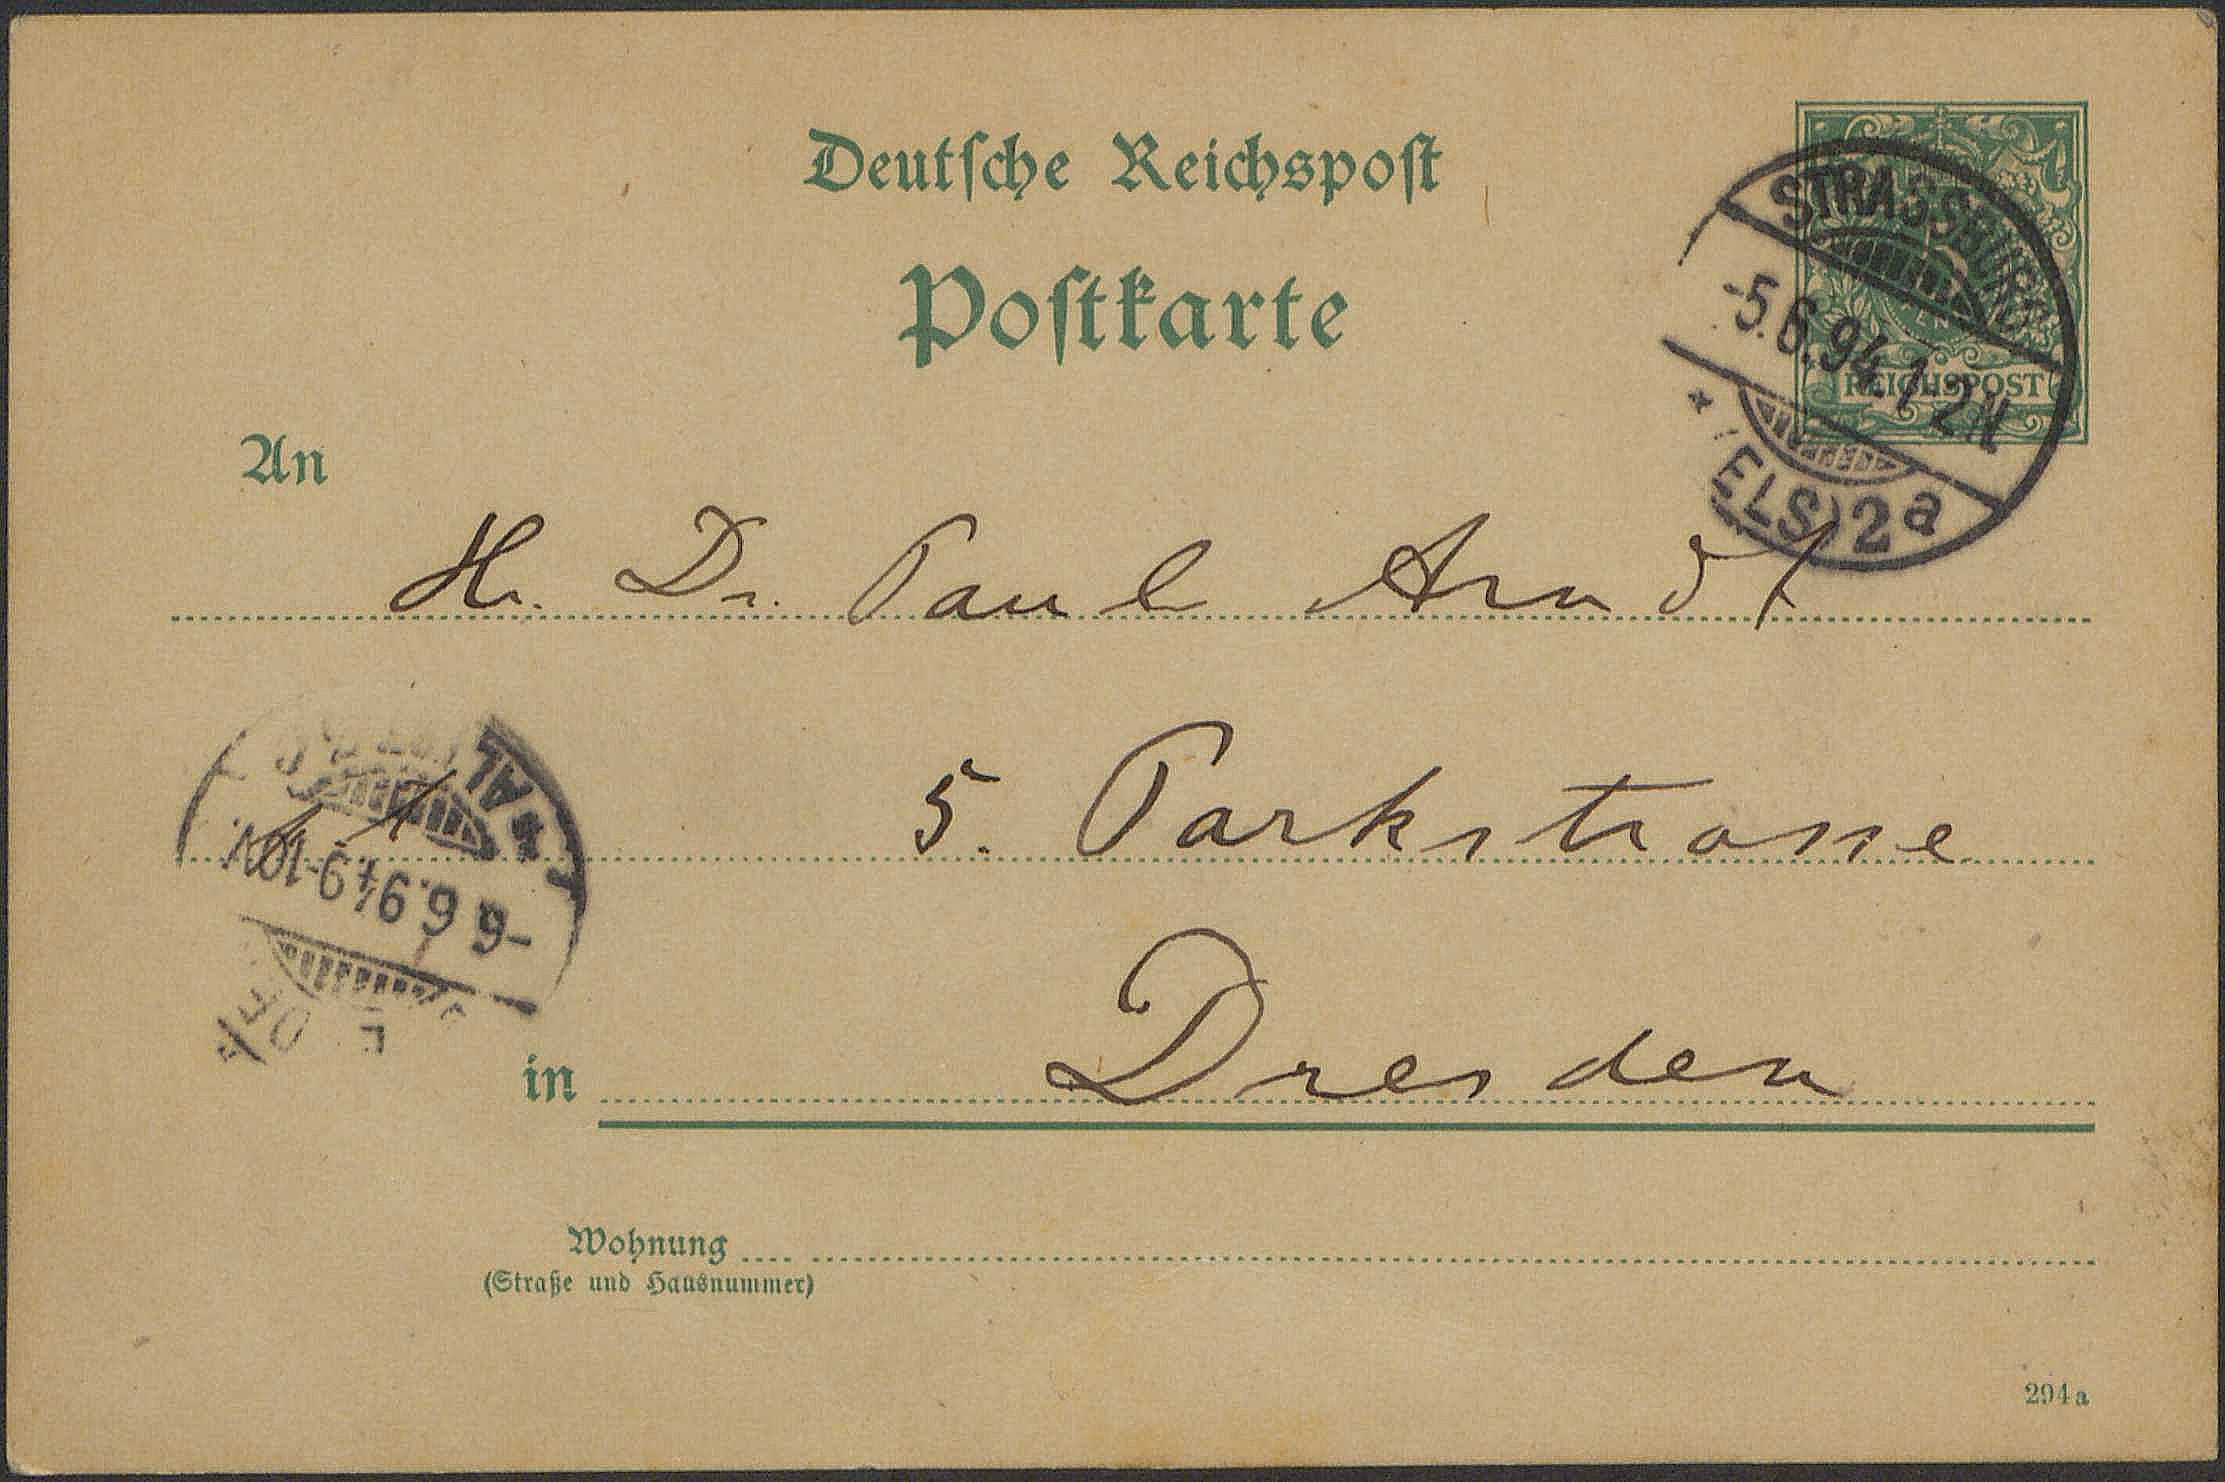 Deutsche Reichspost
Postkarte
STRASSBURG
-5.6.94.1-2N
REICHSPOST
* (ELS) 2a
An
Hr. Dr. Paul Arndt
5. Parkstrasse
-6 6.94.9-10V.
in Dresden
Wohnung
(Straße und Hausnummer)
294a